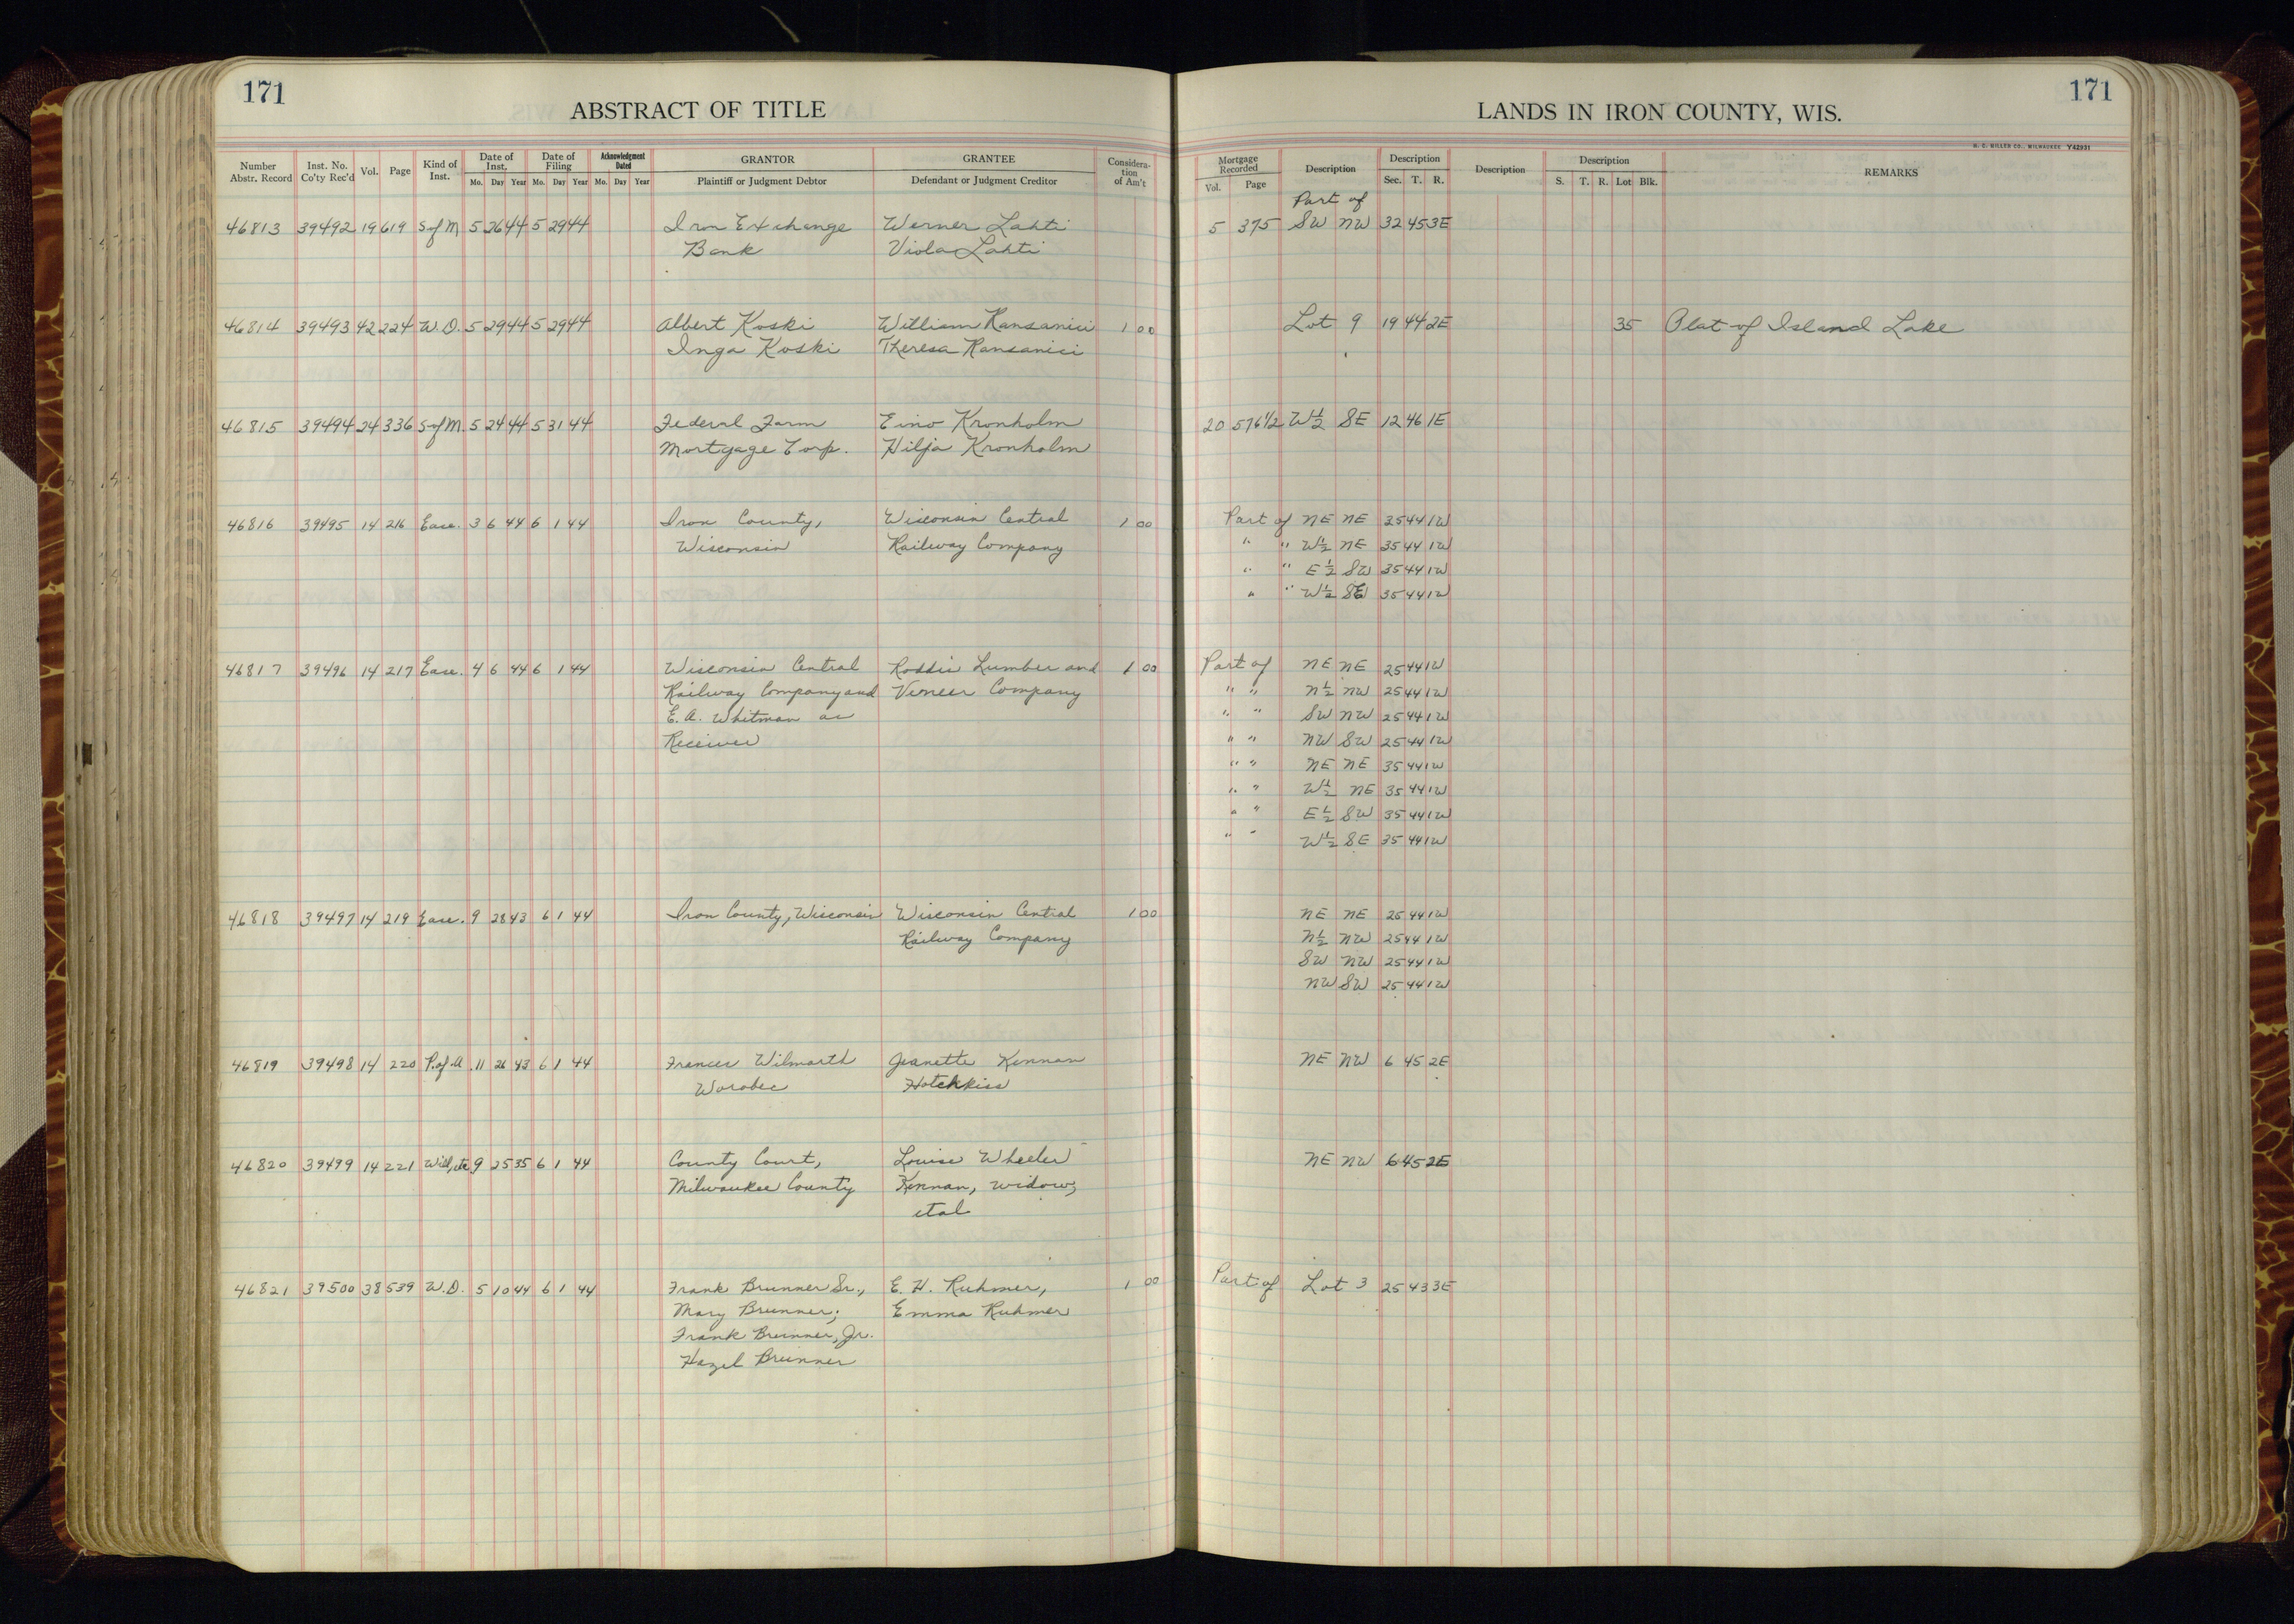 171
ABSTRACT OF TITLE
Number Abstr. Record | Inst. No. Co'ty Rec'd | Vol. | Page | Kind of Inst. | Date of Inst. Mo. Day Year | Date of Filing Mo. Day Year | Acknowledgment Dated Mo. Day Year | GRANTOR Plaintiff or Judgment Debtor | GRANTEE Defendant or Judgment Creditor | Consideration of Am't
46813 39492 19 619 S of M 5 26 44 5 29 44 Iron Exchange Werner Lahti
Bank Viola Lahti
46814 39493 42 224 W.D. 5 29 44 5 29 44 Albert Koski William Ransanici 1 00
Inga Koski Theresa Ransanici
46815 39494 24 336 S of M. 5 24 44 5 31 44 Federal Farm Eino Kronholm
Mortgage Corp. Hilja Kronholm
46816 39495 14 216 Ease. 3 6 44 6 1 44 Iron County, Wisconsin Central 1 00
Wisconsin Railway Company
46817 39496 14 217 Ease. 4 6 44 6 1 44 Wisconsin Central Roddis Lumber and 1 00
Railway Company and Veneer Company
E. A. Whitman as
Receiver
46818 39497 14 219 Ease. 9 28 43 6 1 44 Iron County, Wisconsin Wisconsin Central 1 00
Railway Company
46819 39498 14 220 P. of A. 11 26 43 6 1 44 Frances Wilmarth Jeanette Kennan
Worobec Hotchkiss
46820 39499 14 221 Will, etc. 9 25 35 6 1 44 County Court, Louise Wheeler
Milwaukee County Kennan, widow,
etal
46821 39500 38 539 W.D. 5 10 44 6 1 44 Frank Brunner Sr., E. H. Ruhmer, 1 00
Mary Brunner, Emma Ruhmer
Frank Brunner, Jr.
Hazel Brunner
171
LANDS IN IRON COUNTY, WIS.
H. C. MILLER CO., MILWAUKEE Y42931
Mortgage Recorded Vol. Page | Description | Description Sec. T. R. | Description | Description S. T. R. Lot Blk. | REMARKS
Part of
5 375 SW NW 32 45 3E
Lot 9 19 44 2E 35 Plat of Island Lake
20 576 1/2 W 1/2 SE 12 46 1E
Part of NE NE 25 44 1W
" " W 1/2 NE 35 44 1W
" " E 1/2 SW 35 44 1W
" " W 1/2 SE 35 44 1W
Part of NE NE 25 44 1W
" " N 1/2 NW 25 44 1W
" " SW NW 25 44 1W
" " NW SW 25 44 1W
" " NE NE 35 44 1W
" " W 1/2 NE 35 44 1W
" " E 1/2 SW 35 44 1W
" " W 1/2 SE 35 44 1W
NE NE 25 44 1W
N 1/2 NW 25 44 1W
SW NW 25 44 1W
NW SW 25 44 1W
NE NW 6 45 2E
NE NW 6 45 2E
Part of Lot 3 25 43 3E